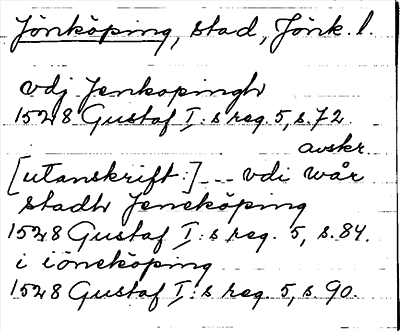 Jönköping, stad, Jönk. l.
vdj Jenkopingh
1528 Gustaf I:s reg. 5, s. 72
avskr.
[utanskrift:] _ _ vdi wår
stadh Jeneköping
1528 Gustaf I:s reg. 5, s. 84.
i iöneköping
1528 Gustaf I:s reg. 5, s. 90.